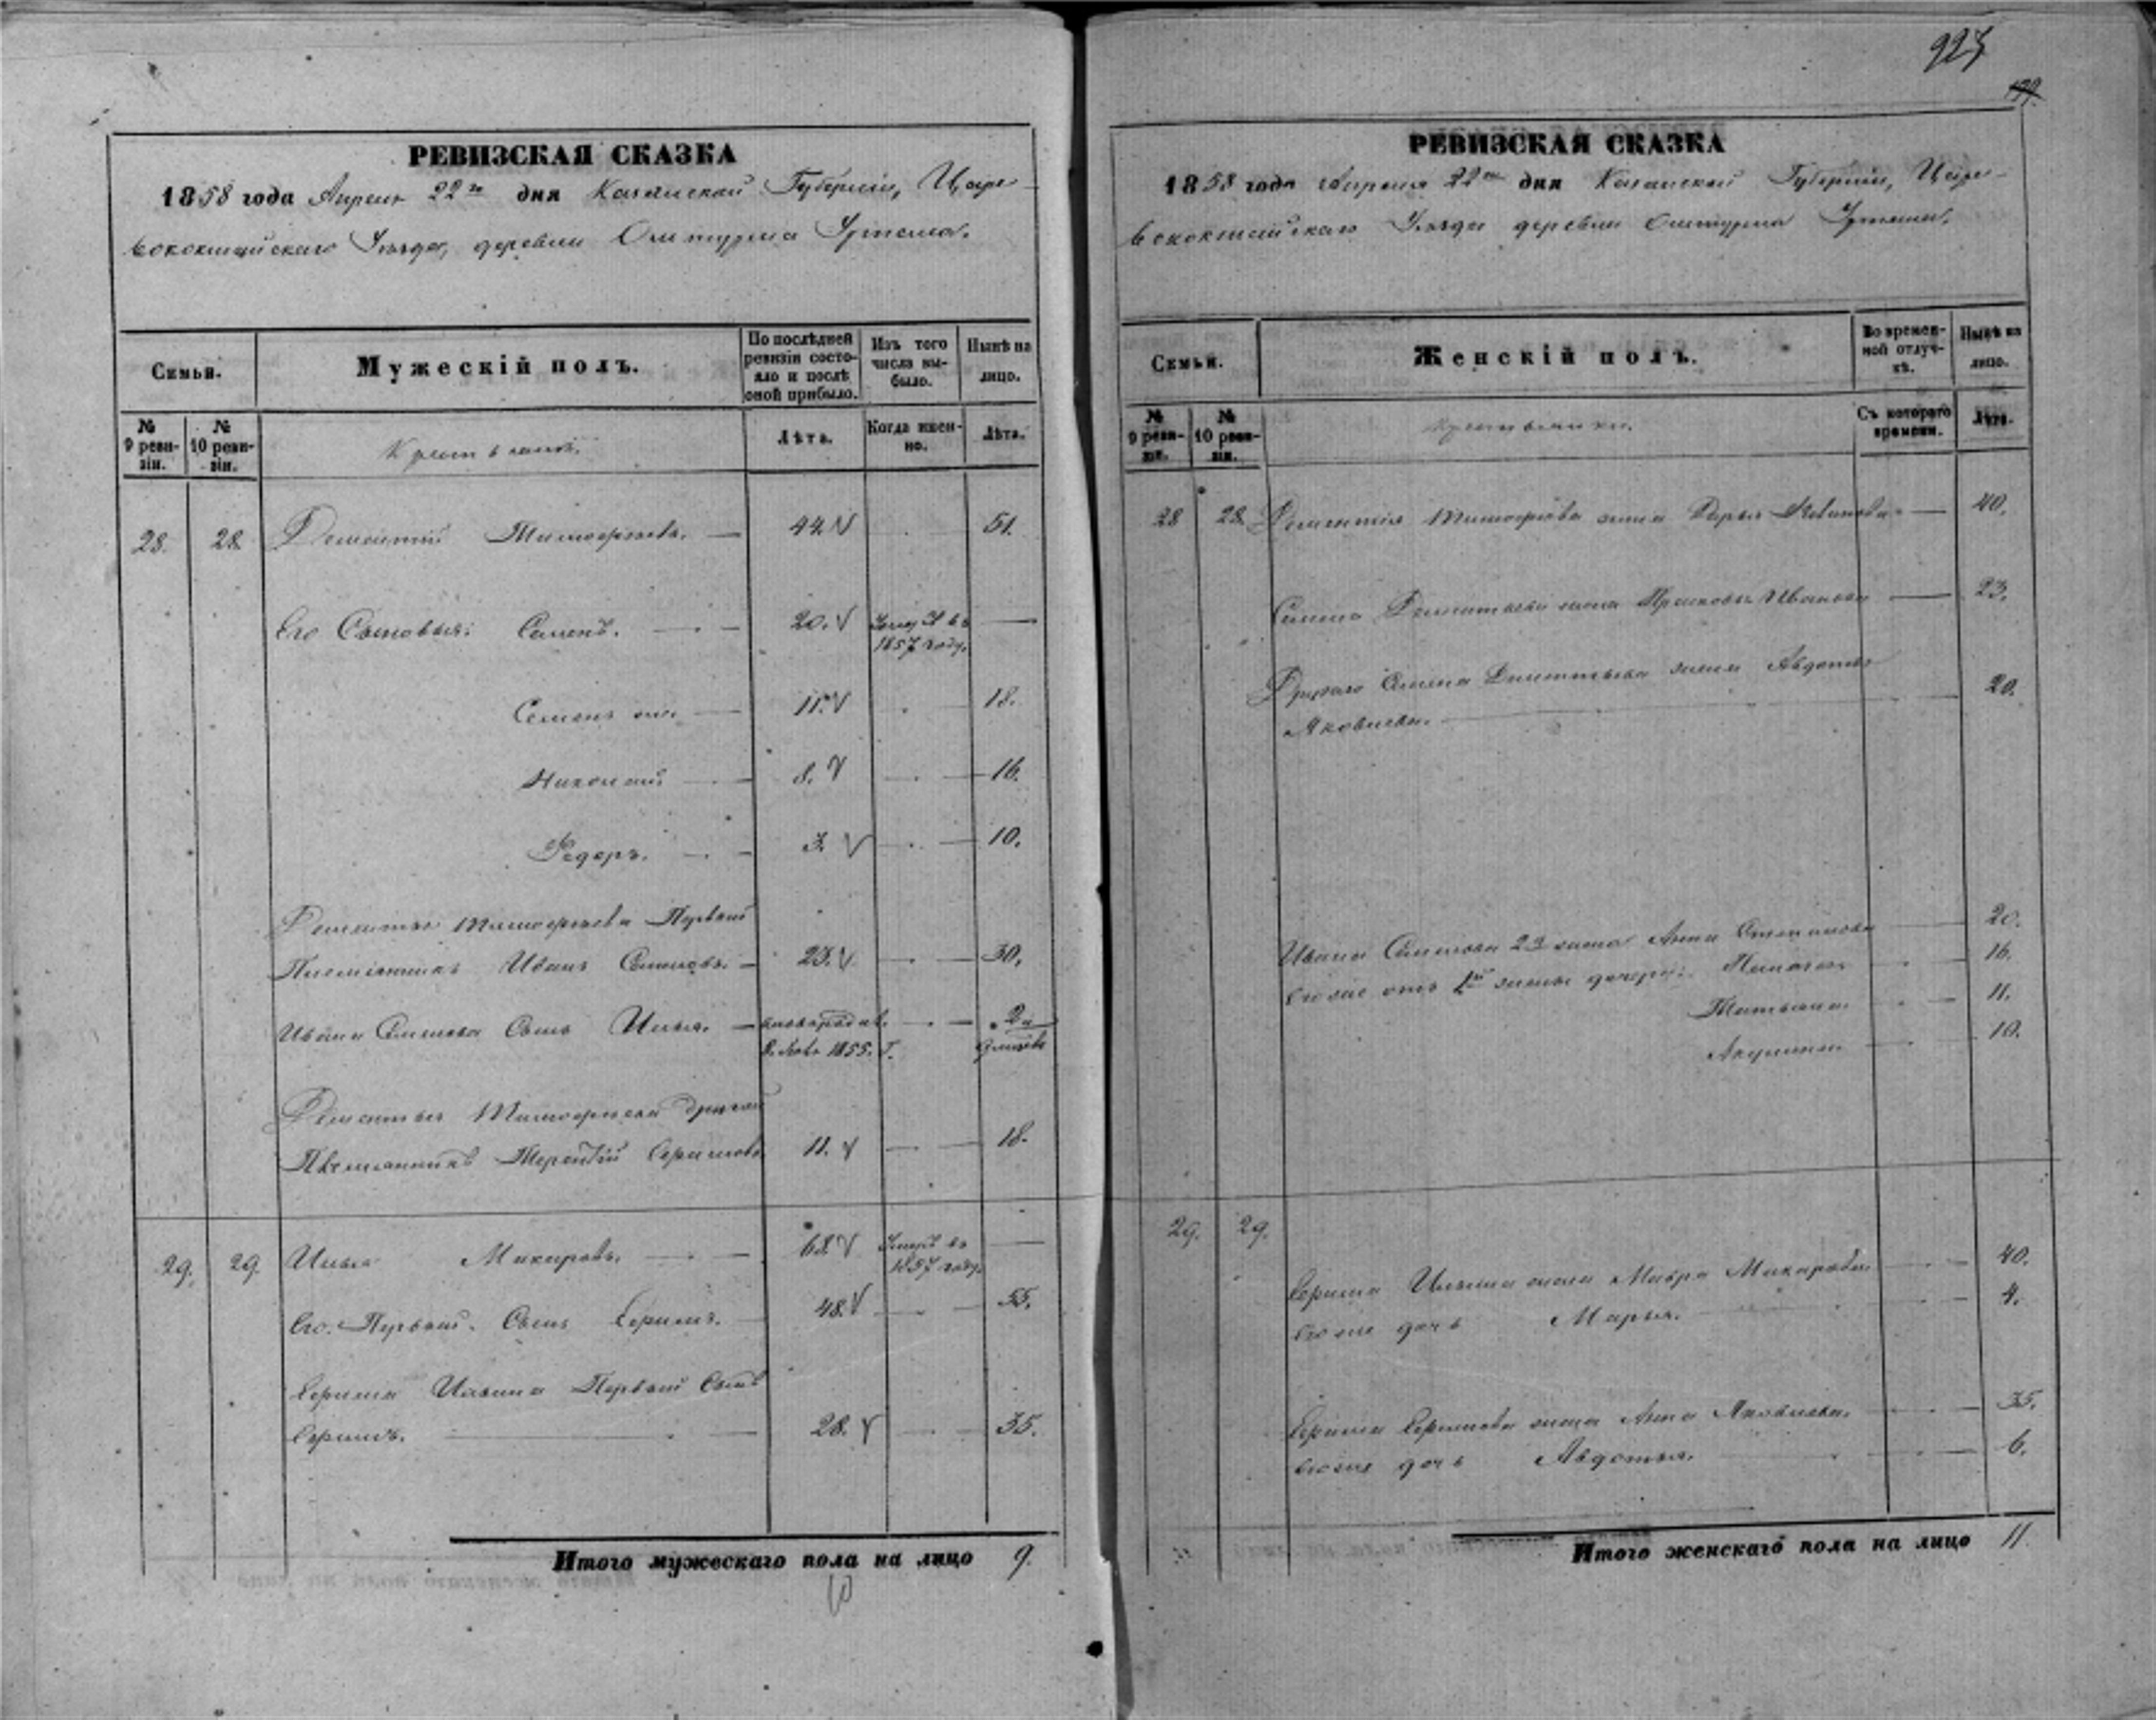 927
139.
РЕВИЗСКАЯ СКАЗКА
1858 года Апреля 22го дня Казанской Губерніи, Царе-
вококшайскаго Уѣзда, деревни
Семьи.
Мужескій полъ.
По послѣдней ревизіи состояло и послѣ оной прибыло.
Изъ того числа выбыло.
Нынѣ на лицо.
№ 9 ревизіи.
№ 10 ревизіи.
Крестьяне.
Лѣта.
Когда именно.
Лѣта.
28. 28. Дементій Тимофѣевъ. — 44. 51.
Его Сыновья: Семенъ. — 20. Умеръ въ —
1857 году.
Семенъ — 11. 18.
Николай — 8. 16.
Федоръ. — 3. 10.
Дементья Тимофѣева Первый
Племянникъ Иванъ Семеновъ. — 23. 30.
Ивана Семенова Сынъ Илья. — новорожд. 2 и
1855. г. 9 мѣсяц
Дементья Тимофѣева другой
Племянникъ Терентій Ефимовъ 11. 18.
29. 29. Илья Макаровъ. — 68. Умеръ въ —
1857 году.
Его Первый Сынъ Ефимъ. 48. 55.
Ефима Ильина Первый Сынъ
Ефимъ. — 28. 35.
Итого мужескаго пола на лицо 9.
10
РЕВИЗСКАЯ СКАЗКА
1858 года Апреля 22го дня Казанской Губерніи, Царе-
вококшайскаго Уѣзда деревни
Семьи.
Женскій полъ.
Во временной отлучкѣ.
Нынѣ на лицо.
№ 9 ревизіи.
№ 10 ревизіи.
Крестьянки.
Съ котораго времени.
Лѣта.
28 28. Дементія Тимофѣева жена Дарья — 40.
Семена Дементьева жена Прасковья Иванова — 23.
Другаго Семена Дементьева жена Авдотья
Яковлева. — 20.
Ивана Семенова 2я жена Анна Степанова 20.
Его же отъ 1й жены дочери: Пелагея 16.
Татьяна 11.
Акулина 10.
29. 29.
Ефима Ильина жена Мавра Макарова 40.
Его же дочь Марья. 4.
Ефима Ефимова жена Анна Яковлева. 35.
Его же дочь Авдотья. 6.
Итого женскаго пола на лицо 11